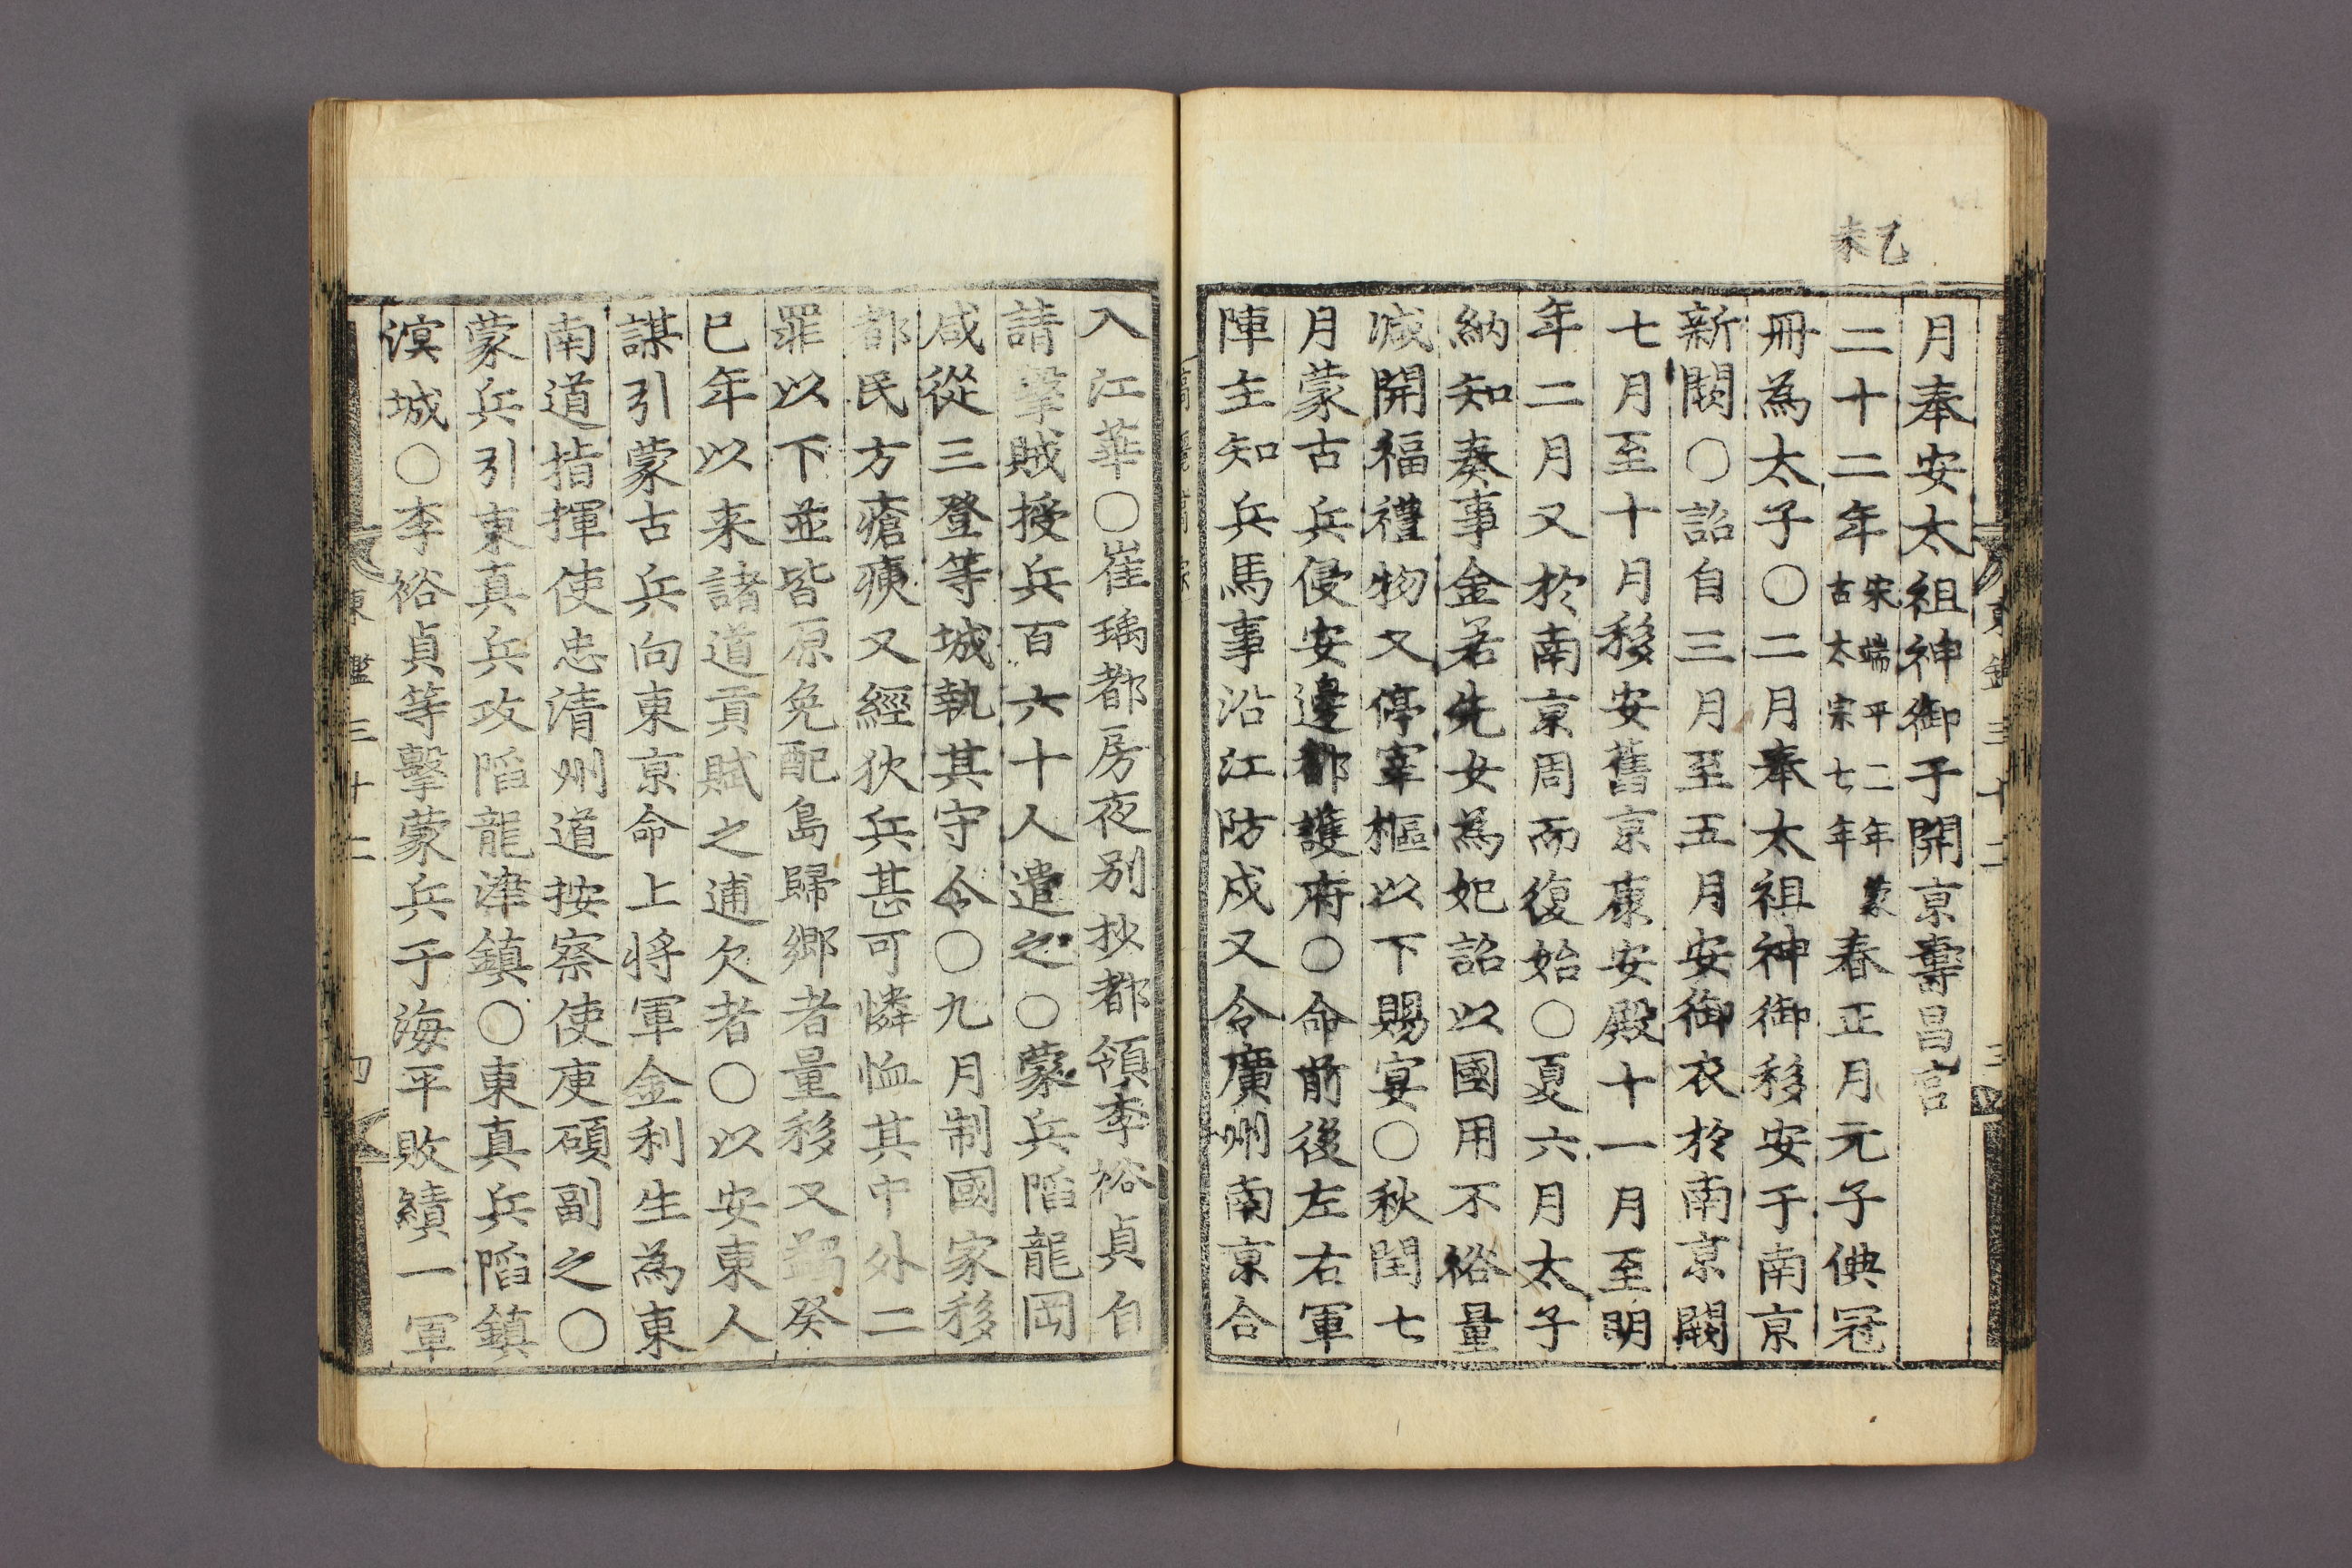 乙未
月奉安太祖神御于開京壽昌宮
二十二年宋端平二年蒙古太宗七年春正月元子倎冠
冊為太子○二月奉太祖神御移安于南京
新闕○詔自三月至五月安御衣於南京闕
七月至十月移安舊京康安殿十一月至明
年二月又於南京周而復始○夏六月太子
納知奏事金若先女為妃詔以國用不裕量
減開福禮物又停宰樞以下賜宴○秋閏七
月蒙古兵侵安邊都護府○命前後左右軍
陣主知兵馬事沿江防戍又令廣州南京合
東鑑三十二 三
入江華○崔瑀都房夜别抄都領李裕貞自
請擊賊授兵百六十人遣之○蒙兵陷龍岡
咸從三登等城執其守令○九月制國家移
都民方瘡痍又經狄兵甚可憐恤其中外二
罪以下並皆原免配島歸鄉者量移又蠲癸
巳年以来諸道貢賦之逋欠者○以安東人
謀引蒙古兵向東京命上将軍金利生為東
南道指揮使忠清州道按察使庾碩副之○
蒙兵引東真兵攻陷龍津鎮○東真兵陷鎮
溟城○李裕貞等擊蒙兵于海平敗績一軍
東鑑三十二 四